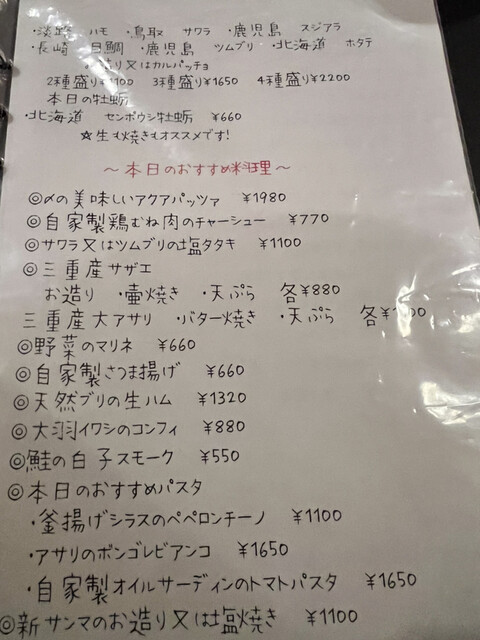 ・淡路 ハモ ・鳥取 サワラ ・鹿児島 スジアラ
・長崎 目鯛 ・鹿児島 ツムブリ ・北海道 ホタテ
お造り又はカルパッチョ
2種盛り¥1100 3種盛り¥1650 4種盛り¥2200
本日の牡蛎
・北海道 センポウシ牡蛎 ¥660
☆生も焼きもオススメです!
～本日のおすすめ料理～
◎〆の美味しいアクアパッツァ ¥1980
◎自家製鶏むね肉のチャーシュー ¥770
◎サワラ又はツムブリの塩タタキ ¥1100
◎三重産サザエ
お造り ・壷焼き ・天ぷら 各¥880
三重産大アサリ ・バター焼き ・天ぷら 各
◎野菜のマリネ ¥660
◎自家製さつま揚げ ¥660
◎天然ブリの生ハム ¥1320
◎大羽イワシのコンフィ ¥880
◎鮭の白子スモーク ¥550
◎本日のおすすめパスタ
・釜揚げシラスのペペロンチーノ ¥1100
・アサリのボンゴレビアンコ ¥1650
・自家製オイルサーディンのトマトパスタ ¥1650
◎新サンマのお造り又は塩焼き ¥1100